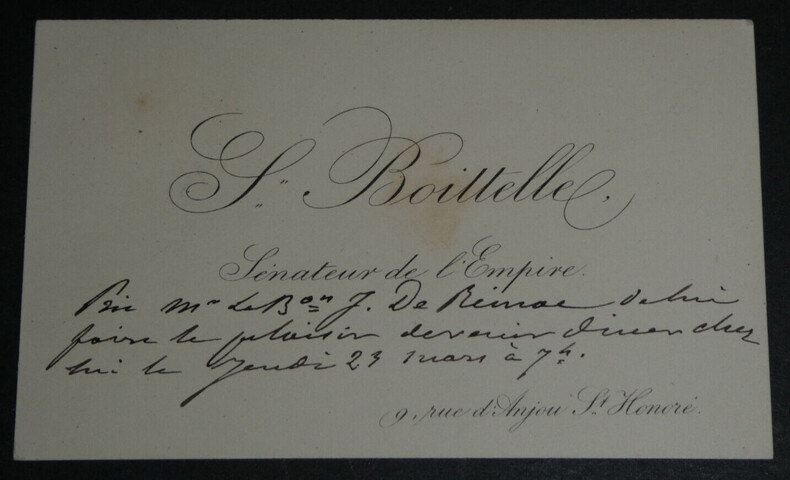 S. Boittelle.
Sénateur de l'Empire.
Prie Mr Le Bon J. De de lui
faire le plaisir de venir diner chez
lui le Jeudi 23 mars à 7h.
9, rue d'Anjou St. Honoré.